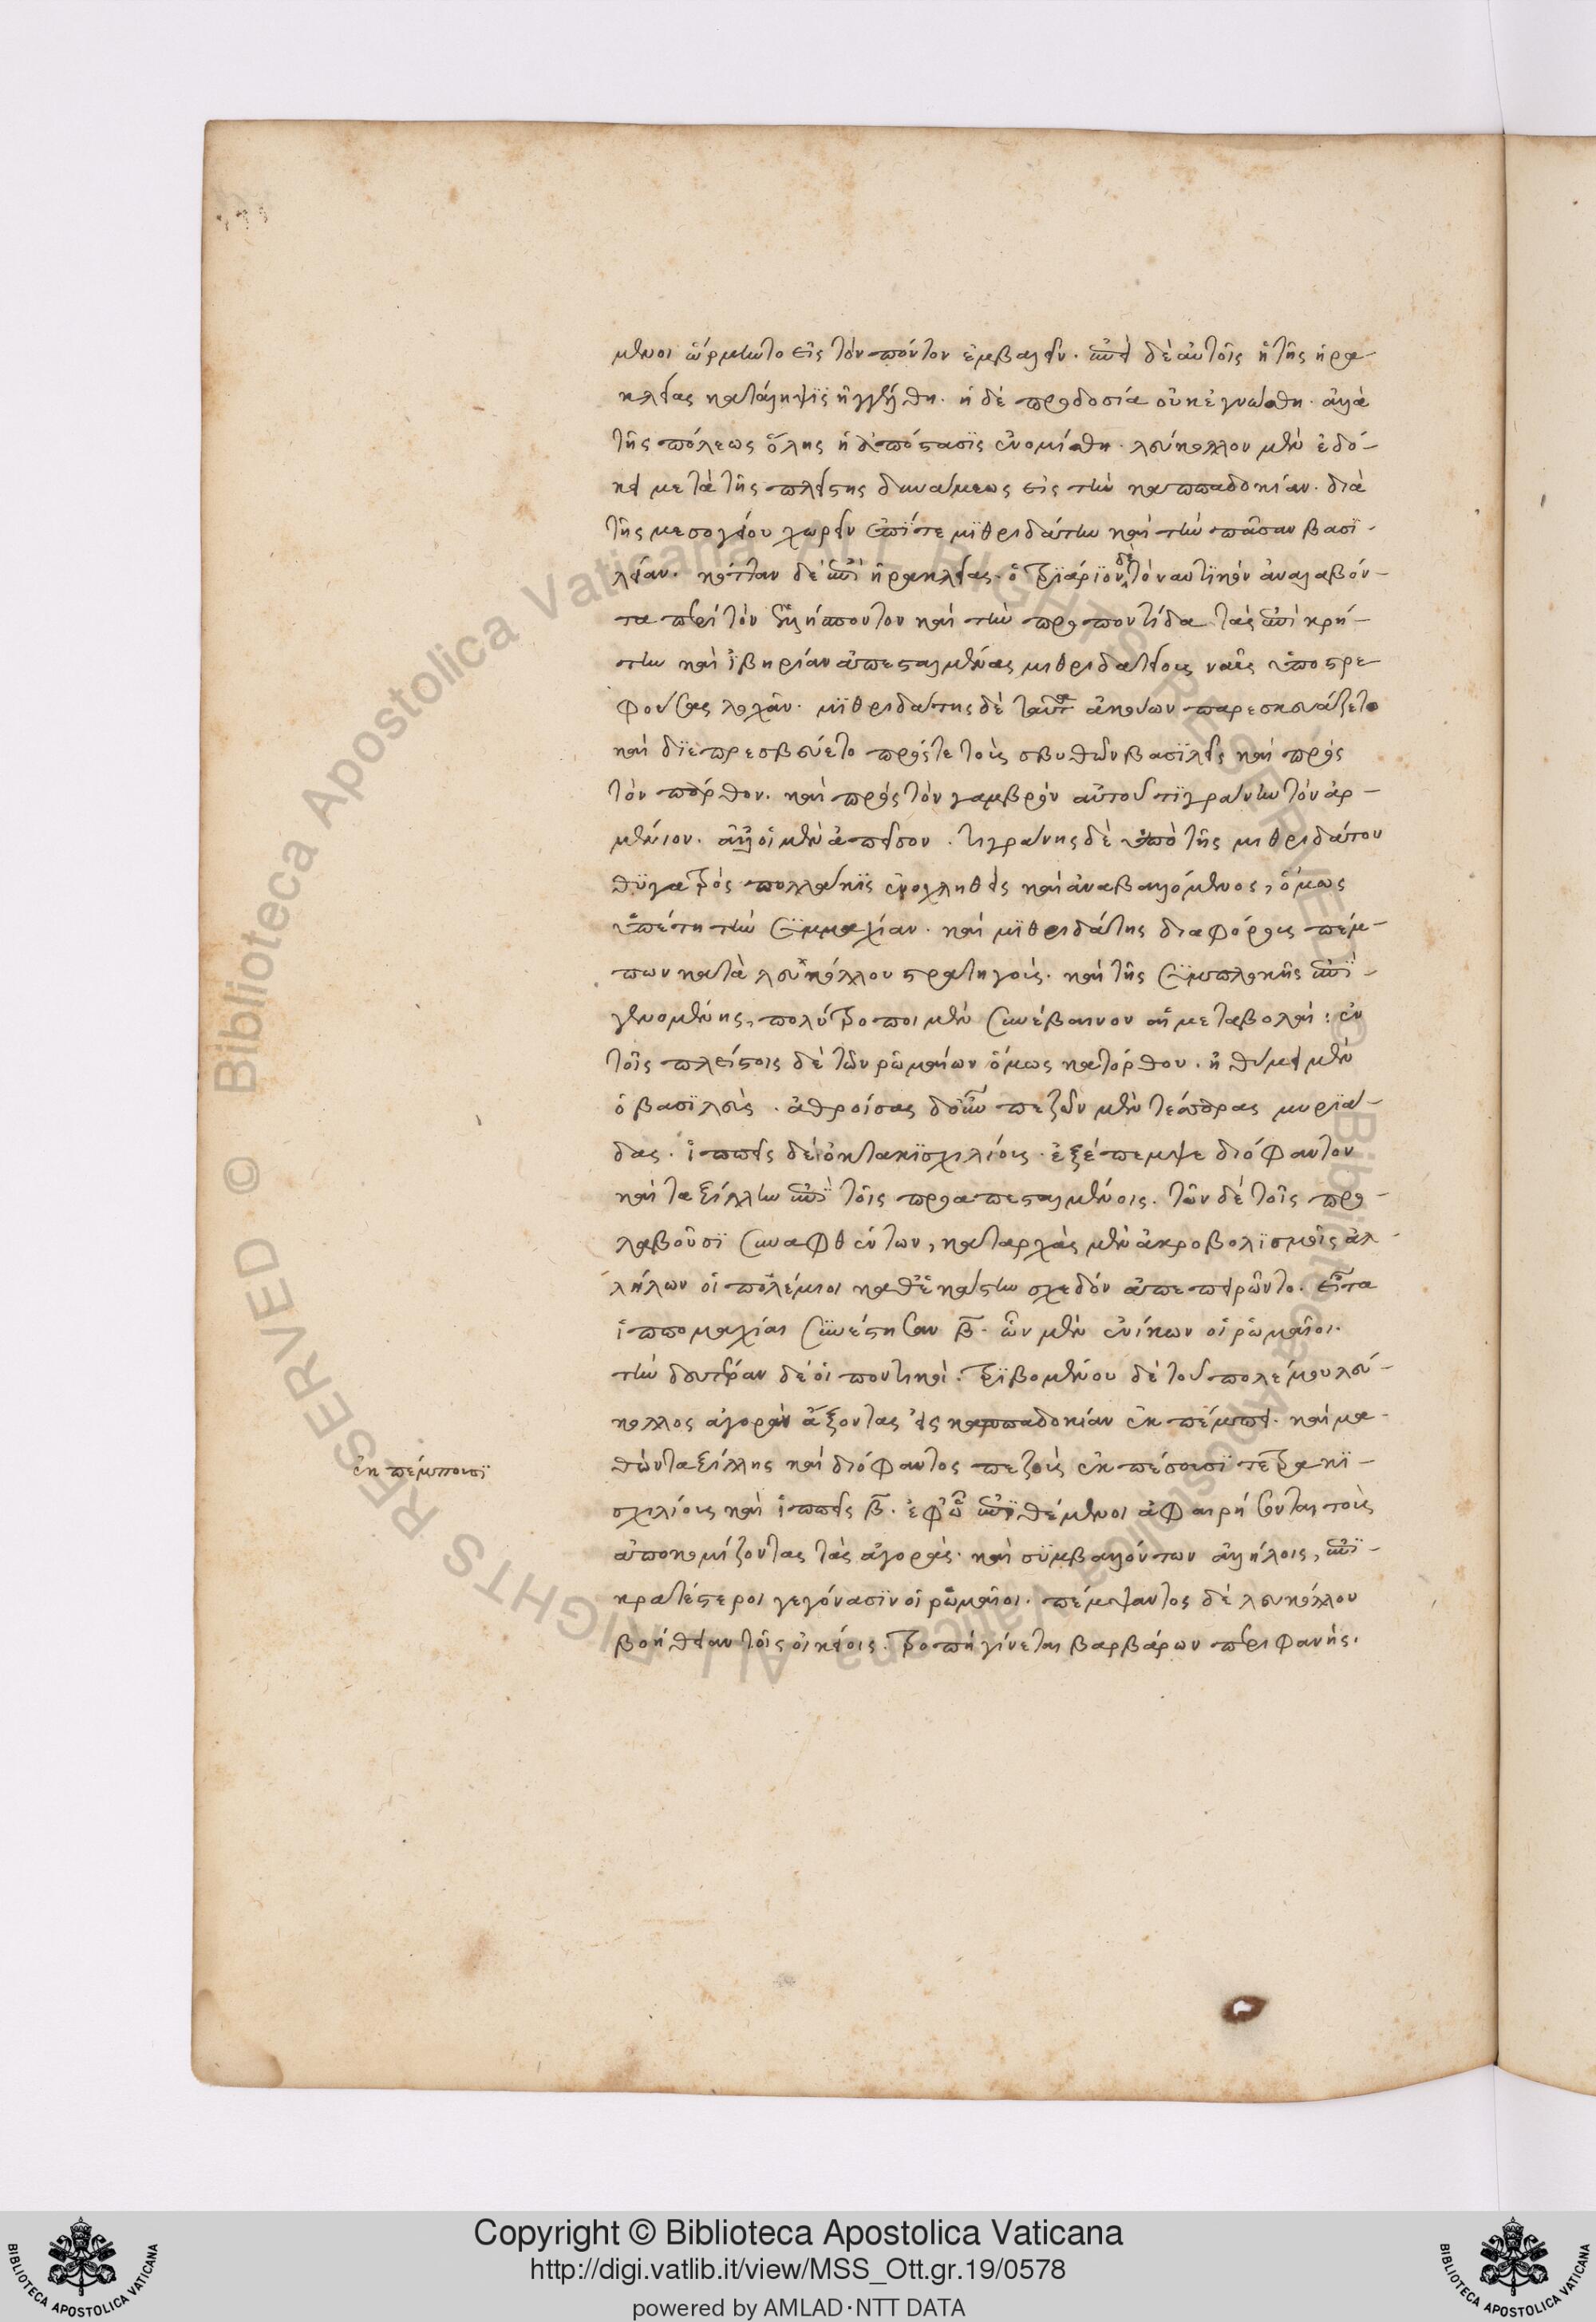 μενοι ὥρμηντο εἰς τὸν πόντον ἐμβαλεῖν. ἐπεὶ δὲ αὐτοῖς ἡ τῆς ἡρα-
κλείας κατάληψϊς ἠγγέλθη. ἡ δὲ προδοσία οὐκ ἐγνώσθη. ἀλλὰ
τῆς πόλεως ὅλης ἡ ἀπόστασϊς ἐνομίσθη. λεύκολλον μὲν ἐδό-
κει μετὰ τῆς πλείστης δυνάμεως εἰς τὴν καππαδοκίαν. διὰ
τῆς μεσογείου χωρεῖν ἐπΐ τε μϊθριδάτην καὶ τὴν πᾶσαν βασϊ-
λείαν. κότταν δὲ ἐπὶ ἡρακλείας. ὁ τρϊάρϊον δὲ τὸ ναυτϊκὸν ἀναλαβόν-
τα περὶ τὸν ἑλλήσποντον καὶ τὴν προποντίδα τὰς ἐπὶ κρή-
την καὶ ἰβηρίαν ἀπεσταλμένας μιθριδατείους ναῦς ὑποστρε
φούσας λοχᾶν. μϊθριδάτης δὲ ταῦτα ἀκούων παρεσκευάζετο
καὶ δϊεπρεσβεύετο πρός τε τοὺς σκυθῶν βασϊλεῖς καὶ πρὸς
τὸν πάρθον. καὶ πρὸς τὸν γαμβρὸν αὐτοῦ τϊγράνην τὸν ἀρ-
μένιον. ἀλλ' οἱ μὲν ἀπεῖπον. τιγράνης δὲ ὑπὸ τῆς μιθριδάτου
θϋγατρὸς πολλάκϊς ἐνοχληθεὶς καὶ ἀναβαλλόμενος, ὅμως
ὑπέστη τὴν συμμαχίαν. καὶ μϊθριδάτης διαφόρους πέμ-
πων κατὰ λευκόλλου στρατηγοὺς. καὶ τῆς συμπλοκῆς ἐπϊ-
γενομένης, πολύτροποι μὲν συνέβαινον αἱ μεταβολαὶ: ἐν
τοῖς πλείστοις δὲ τῶν ῥωμαίων ὅμως κατόρθου. ἠθύμει μὲν
ὁ βασϊλεὺς. ἀθροίσας δ' οὖν πεζῶν μὲν τέσσαρας μυρϊά-
δας. ἱππεῖς δὲ ὀκτακϊσχιλίους. ἐξέπεμψε διόφαντον
καὶ ταξίλλην ἐπὶ τοῖς προαπεσταλμένοις. τῶν δὲ τοῖς προ-
λαβοῦσϊ συναφθέντων, καταρχὰς μὲν ἀκροβολϊσμοῖς ἀλ-
λήλων οἱ πολέμιοι καθ' ἑκάστην σχεδὸν ἀπεπειρῶντο. εἶτα
ἱππομαχίαι συνέστησαν β̅. ὧν μὲν ἐνίκων οἱ ῥωμαῖοι.
τὴν δευτέραν δὲ οἱ ποντικοὶ. τρϊβομένου δὲ τοῦ πολέμου λεύ-
κολλος ἀγορὰν ἄξοντας εἰς καππαδοκίαν ἐκπέμπει. καὶ μα-
θὼν ταξίλλης καὶ διόφαντος πεζοὺς ἐκπέσουσϊ τετρακϊ-
σχιλίους καὶ ἱππεῖς β̅. ἐφ' ᾧ ἐπϊθέμενοι ἀφαιρήσονται τοὺς
ἀποκομίζοντας τὰς ἀγορὰς. καὶ σϋμβαλόντων ἀλλήλοις, ἐπϊ-
κρατέστεροι γεγόνασϊν οἱ ῥωμαῖοι. πέμψαντος δὲ λευκόλλου
βοήθειαν τοῖς οἰκείοις. τροπὴ γίνεται βαρβάρων περιφανής.
ἐκπέμπουσϊ
Copyright © Biblioteca Apostolica Vaticana
http://digi.vatlib.it/view/MSS_Ott.gr.19/0578
powered by AMLAD·NTT DATA